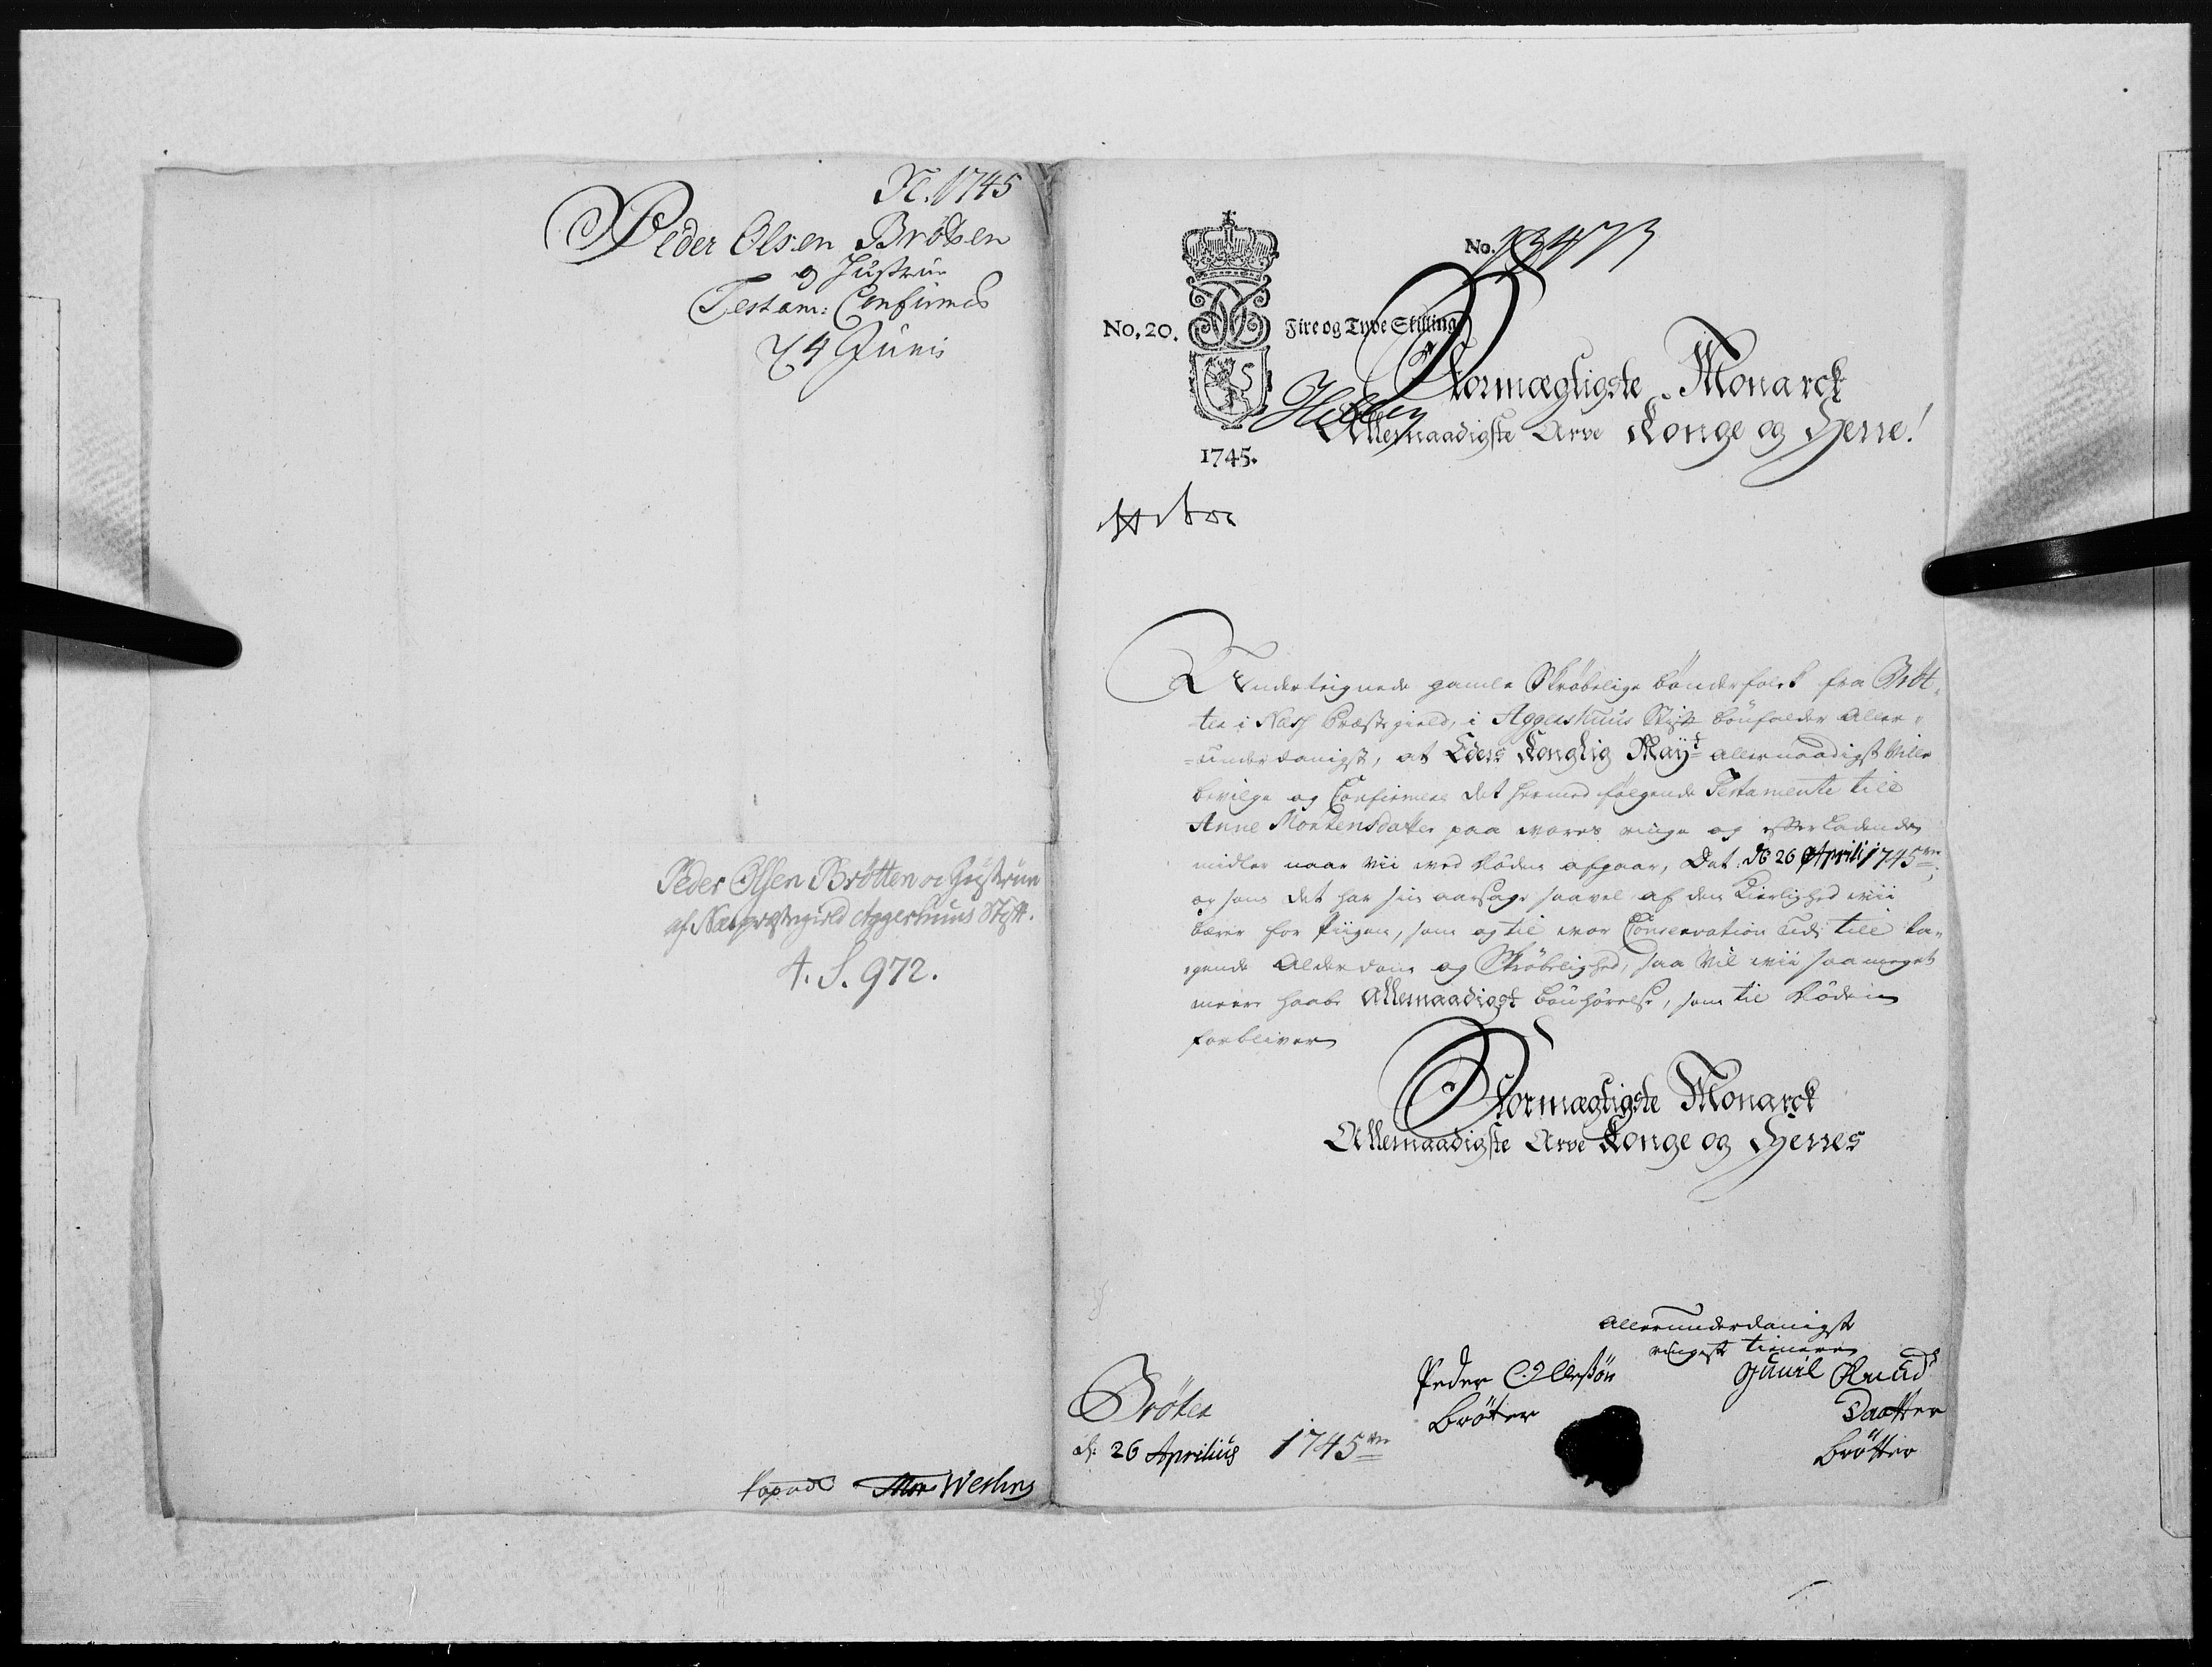 N. 1745
Peder Olsen Bröten
og Hustrue
Testam: Confirmes
4 Junii
Peder Olsen Brötten og Hustrue
af Næs præstegield Aggershuus Stift.
A. S. 972.
Copad Westing
No. 13473
No. 20. Fire og Tyve Skilling
Stormægtigste Monarck
Allernaadigste Arve Konge og Herre!
1745.
Underteignede gamle Skrøbelige bönderfolck fra Bröt-
ten i Næss Præstegield, i Aggershuus Stift bönfalder Aller-
-underdanigst, at Eders Konglig Mayt allernaadigst ville
bevilge og Confirmere det hermed følgende Testamente till
Anne Mortensdatter paa vores ringe og efterladende
midler naar vii ved döden afgaar, Dat. d 26 Aprili 1745
og som det har sin aarsage saavel af den Kierlighed vii
bærer for Piigen, som og til vor Conservation udi till ta-
gende Alderdom og Skrøbelighed, saa vil vii saa meget
meere haabe Allernaadigst bönhörelse, som til Döden
forbliver
Stormægtigste Monarck
Allernaadigste Arve Konge og Herres
Allerunderdanigste
ringeste tienere
Peder Ollesön Gunil Knud
Bröten Bröter Daatter
d: 26 Aprilius 1745 Brötter